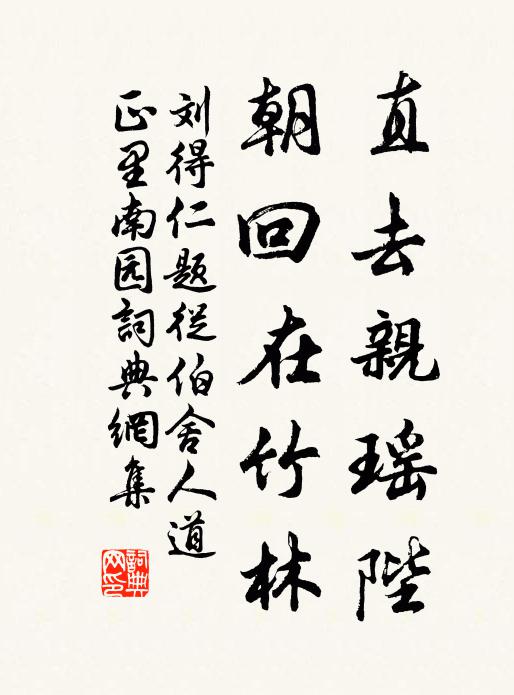 直去親瑶陛
朝回在竹林
刘得仁题從伯舍人道
正里南园詞典網集
詞典网印